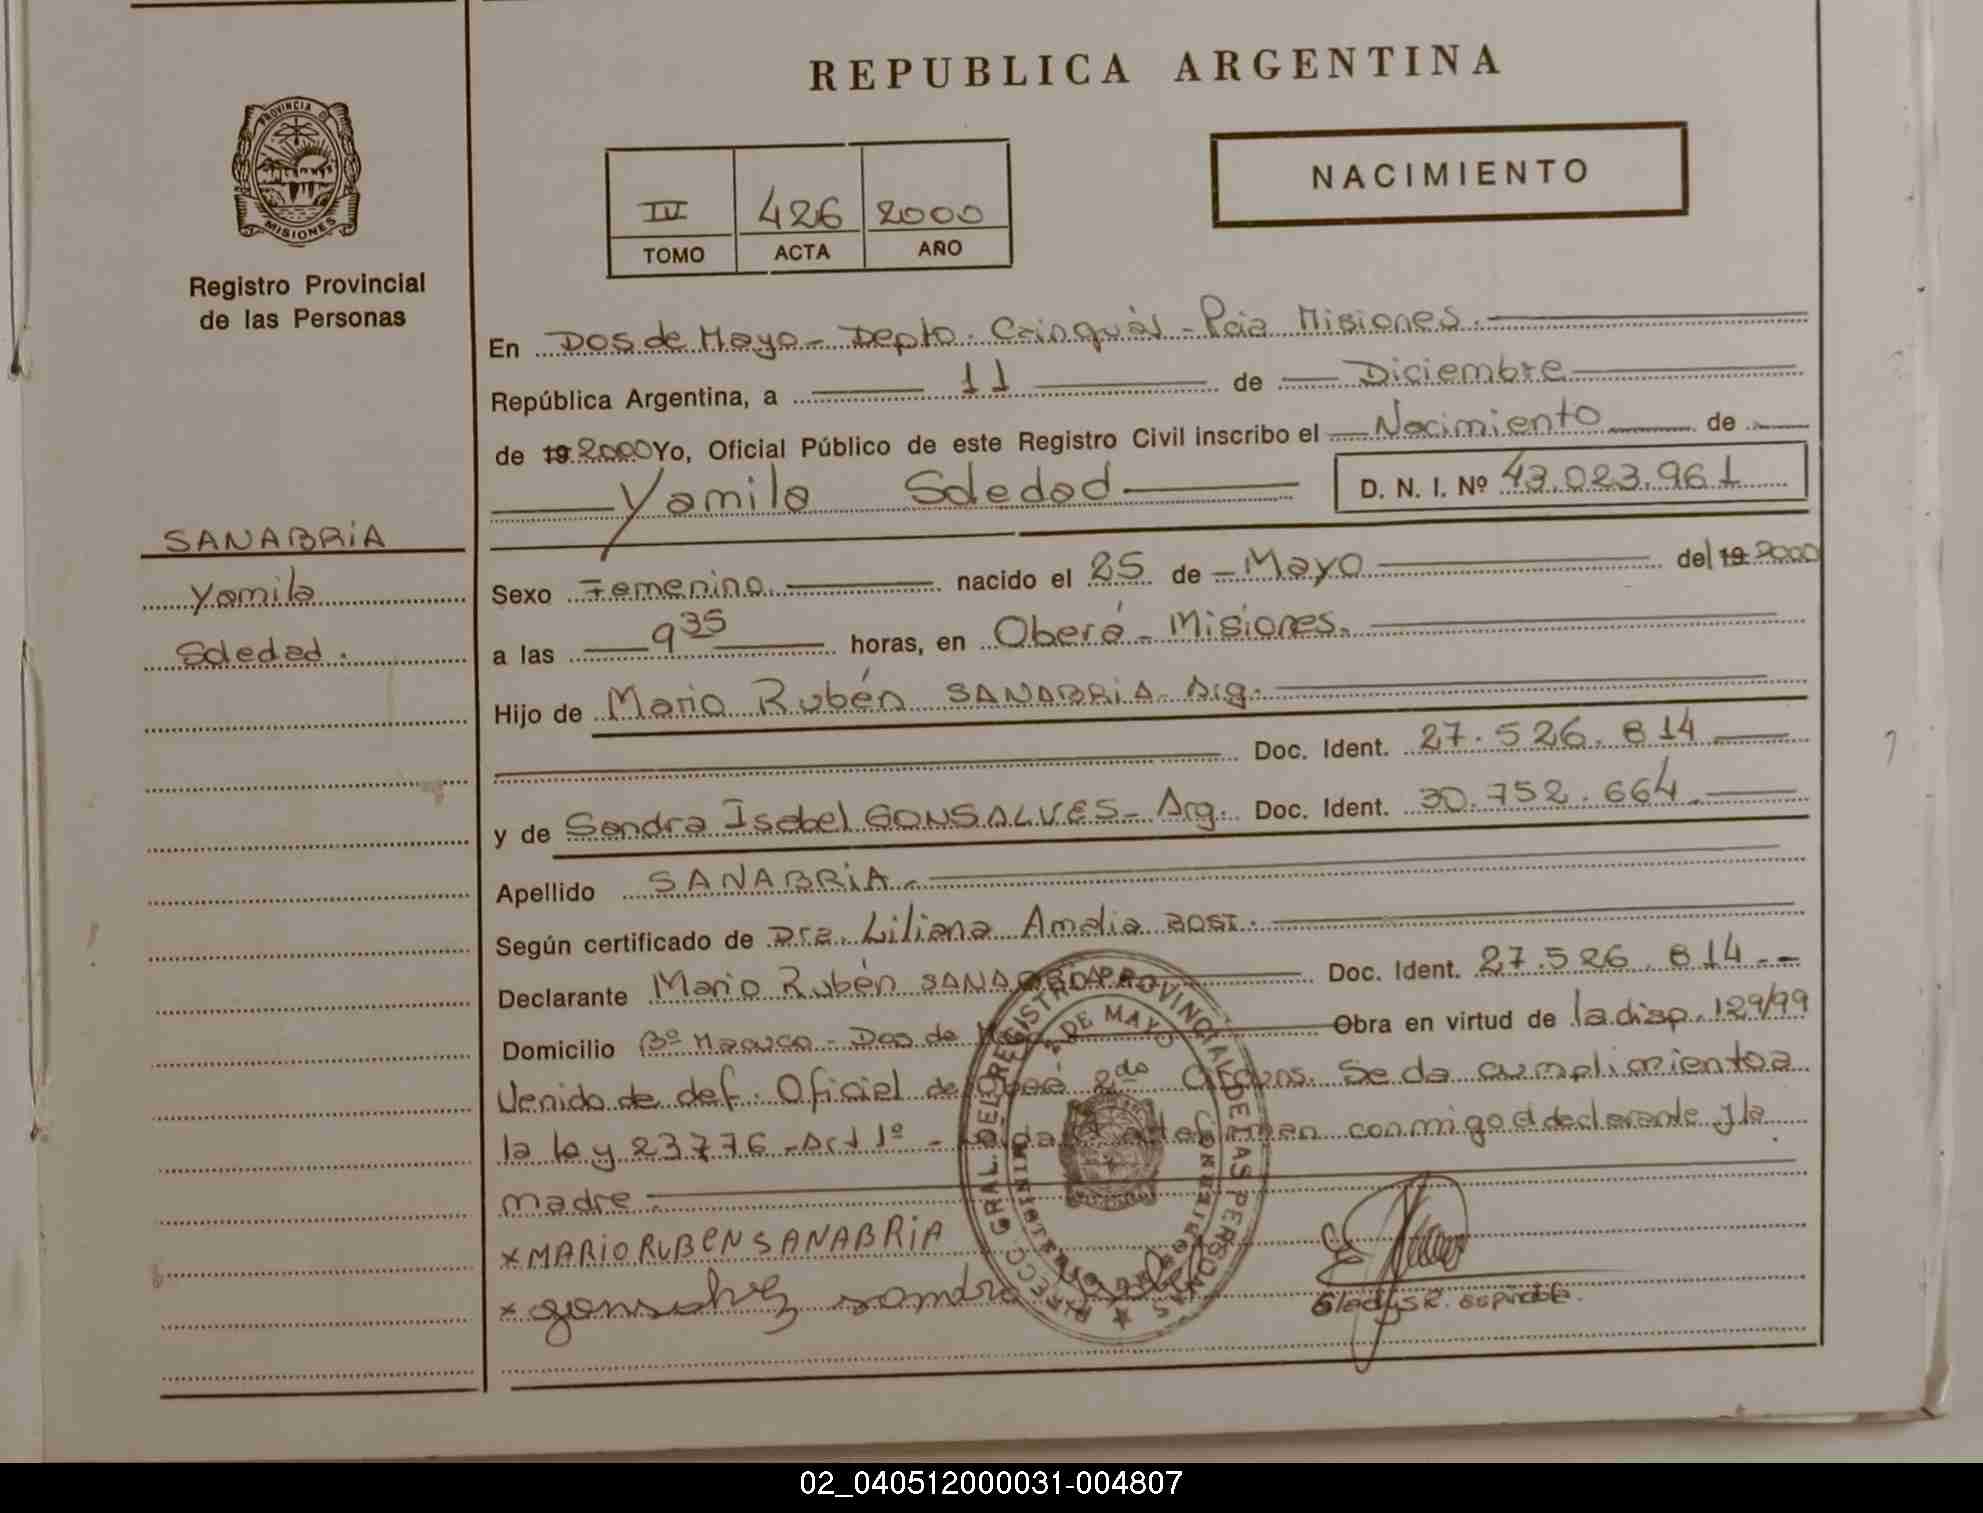 REPUBLICA ARGENTINA
PROVINCIA DE
MISIONES
Registro Provincial
de las Personas
NACIMIENTO
IV 426 2000
TOMO ACTA AÑO
En Dos de Mayo - Depto. Cainguás - Pcia Misiones.
República Argentina, a 11 de Diciembre
de 19 2000 Yo, Oficial Público de este Registro Civil inscribo el Nacimiento de
Yamila Soledad
D. N. I. Nº 43.023.961
SANABRIA
Yamila
Soledad.
Sexo Femenino. nacido el 25 de Mayo del 19 2000
a las 9 35 horas, en Oberá - Misiones.
Hijo de Mario Rubén SANABRIA - Arg.
Doc. Ident. 27.526.814
y de Sandra Isabel GONSALVES - Arg. Doc. Ident. 30.752.664.
Apellido SANABRIA.
Según certificado de Dra. Liliana Amalia BOSI.
Declarante Mario Rubén SANABRIA Doc. Ident. 27.526.814 --
Domicilio Bº - Dos de Obra en virtud de la disp. 129/99
Venido de def. Oficial de Oberá 2do Se da cumplimiento a
la ley 23776 - Art 1º - conmigo el declarante y la
madre.
x MARIO RUBEN SANABRIA
x gonsalvez sandra
Gladys R.
DIRECC. GRAL. DEL REGISTRO PROVINCIAL DE LAS PERSONAS
2 DE MAYO
02_040512000031-004807